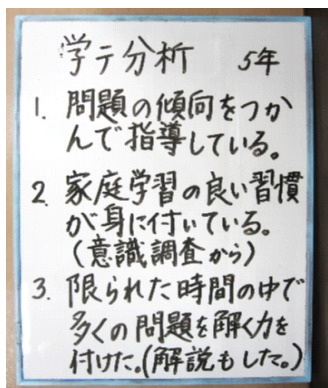 学テ分析 5年
1. 問題の傾向をつか
んで指導している。
2. 家庭学習の良い習慣
が身に付いている。
(意識調査から)
3. 限られた時間の中で
多くの問題を解く力を
付けた。(解説もした。)